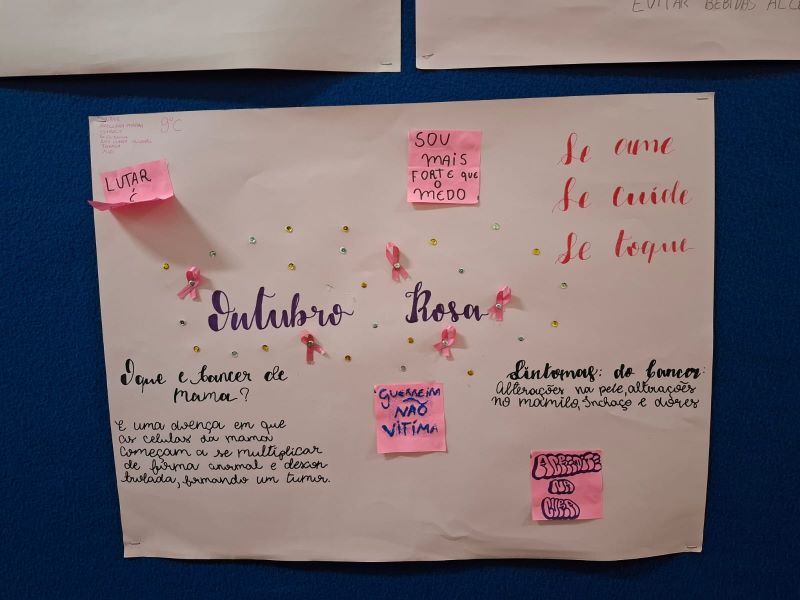 EVITAR BEBIDAS ALCO
9ºC
LUTAR
É
SOU
MAIS
FORTE QUE
O
MEDO
Se ame
Se cuide
Se toque
Outubro Rosa
O que e Cancer de
Mama?
E uma doença em que
as celulas da mama
Começam a se multiplicar
de forma anormal e descon
trolada, formando um tumor.
GUERREIRA
NÃO
VITÍMA
Sintomas: do Cancer:
Alterações na pele, alterações
no mamilo, Inchaço e dores
ACREDITE
NA
CURA